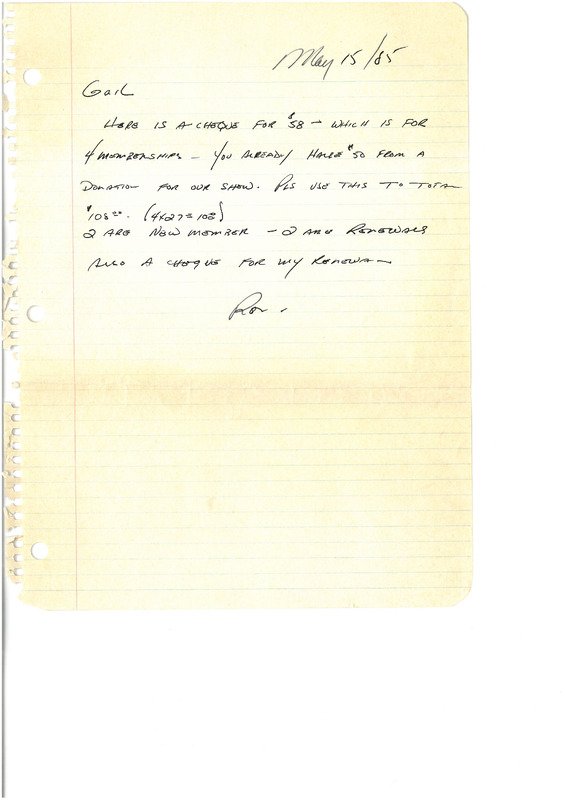 May 15/85
Gail
HERE IS A CHEQUE FOR $58 – WHICH IS FOR
4 MEMBERSHIPS – YOU ALREADY HAVE $50 FROM A
DONATION FOR OUR SHOW. PLS USE THIS TO TOTAL
$108.00. (4x27=108)
2 ARE NEW MEMBER – 2 ARE RENEWALS
ALSO A CHEQUE FOR MY RENEWAL
Ron.